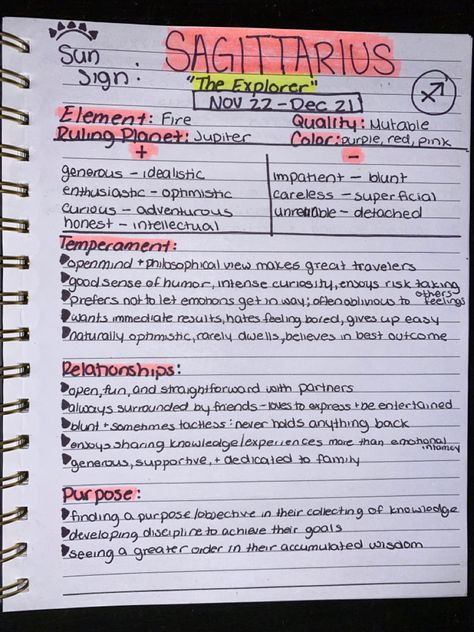 Sun
Sign:
SAGITTARIUS
"The Explorer"
NOV 22 - Dec 21
Element: Fire
Quality: Mutable
Ruling Planet: Jupiter
Color: purple, red, pink
+
-
generous - idealistic
impatient - blunt
enthusiastic - optimistic
careless - superficial
curious - adventurous
unreliable - detached
honest - intellectual
Temperament:
openmind + philosophical view makes great travelers
good sense of humor, intense curiosity, enjoys risk taking
prefers not to let emotions get in way; often oblivious to others feelings
wants immediate results, hates feeling bored, gives up easy
naturally optimistic, rarely dwells, believes in best outcome
Relationships:
open, fun, and straightforward with partners
always surrounded by friends - loves to express + be entertained
blunt + sometimes tactless: never holds anything back
enjoys sharing knowledge/experiences more than emotional intamcy
generous, supportive, + dedicated to family
Purpose:
finding a purpose/objective in their collecting of knowledge
developing discipline to achieve their goals
seeing a greater order in their accumulated wisdom